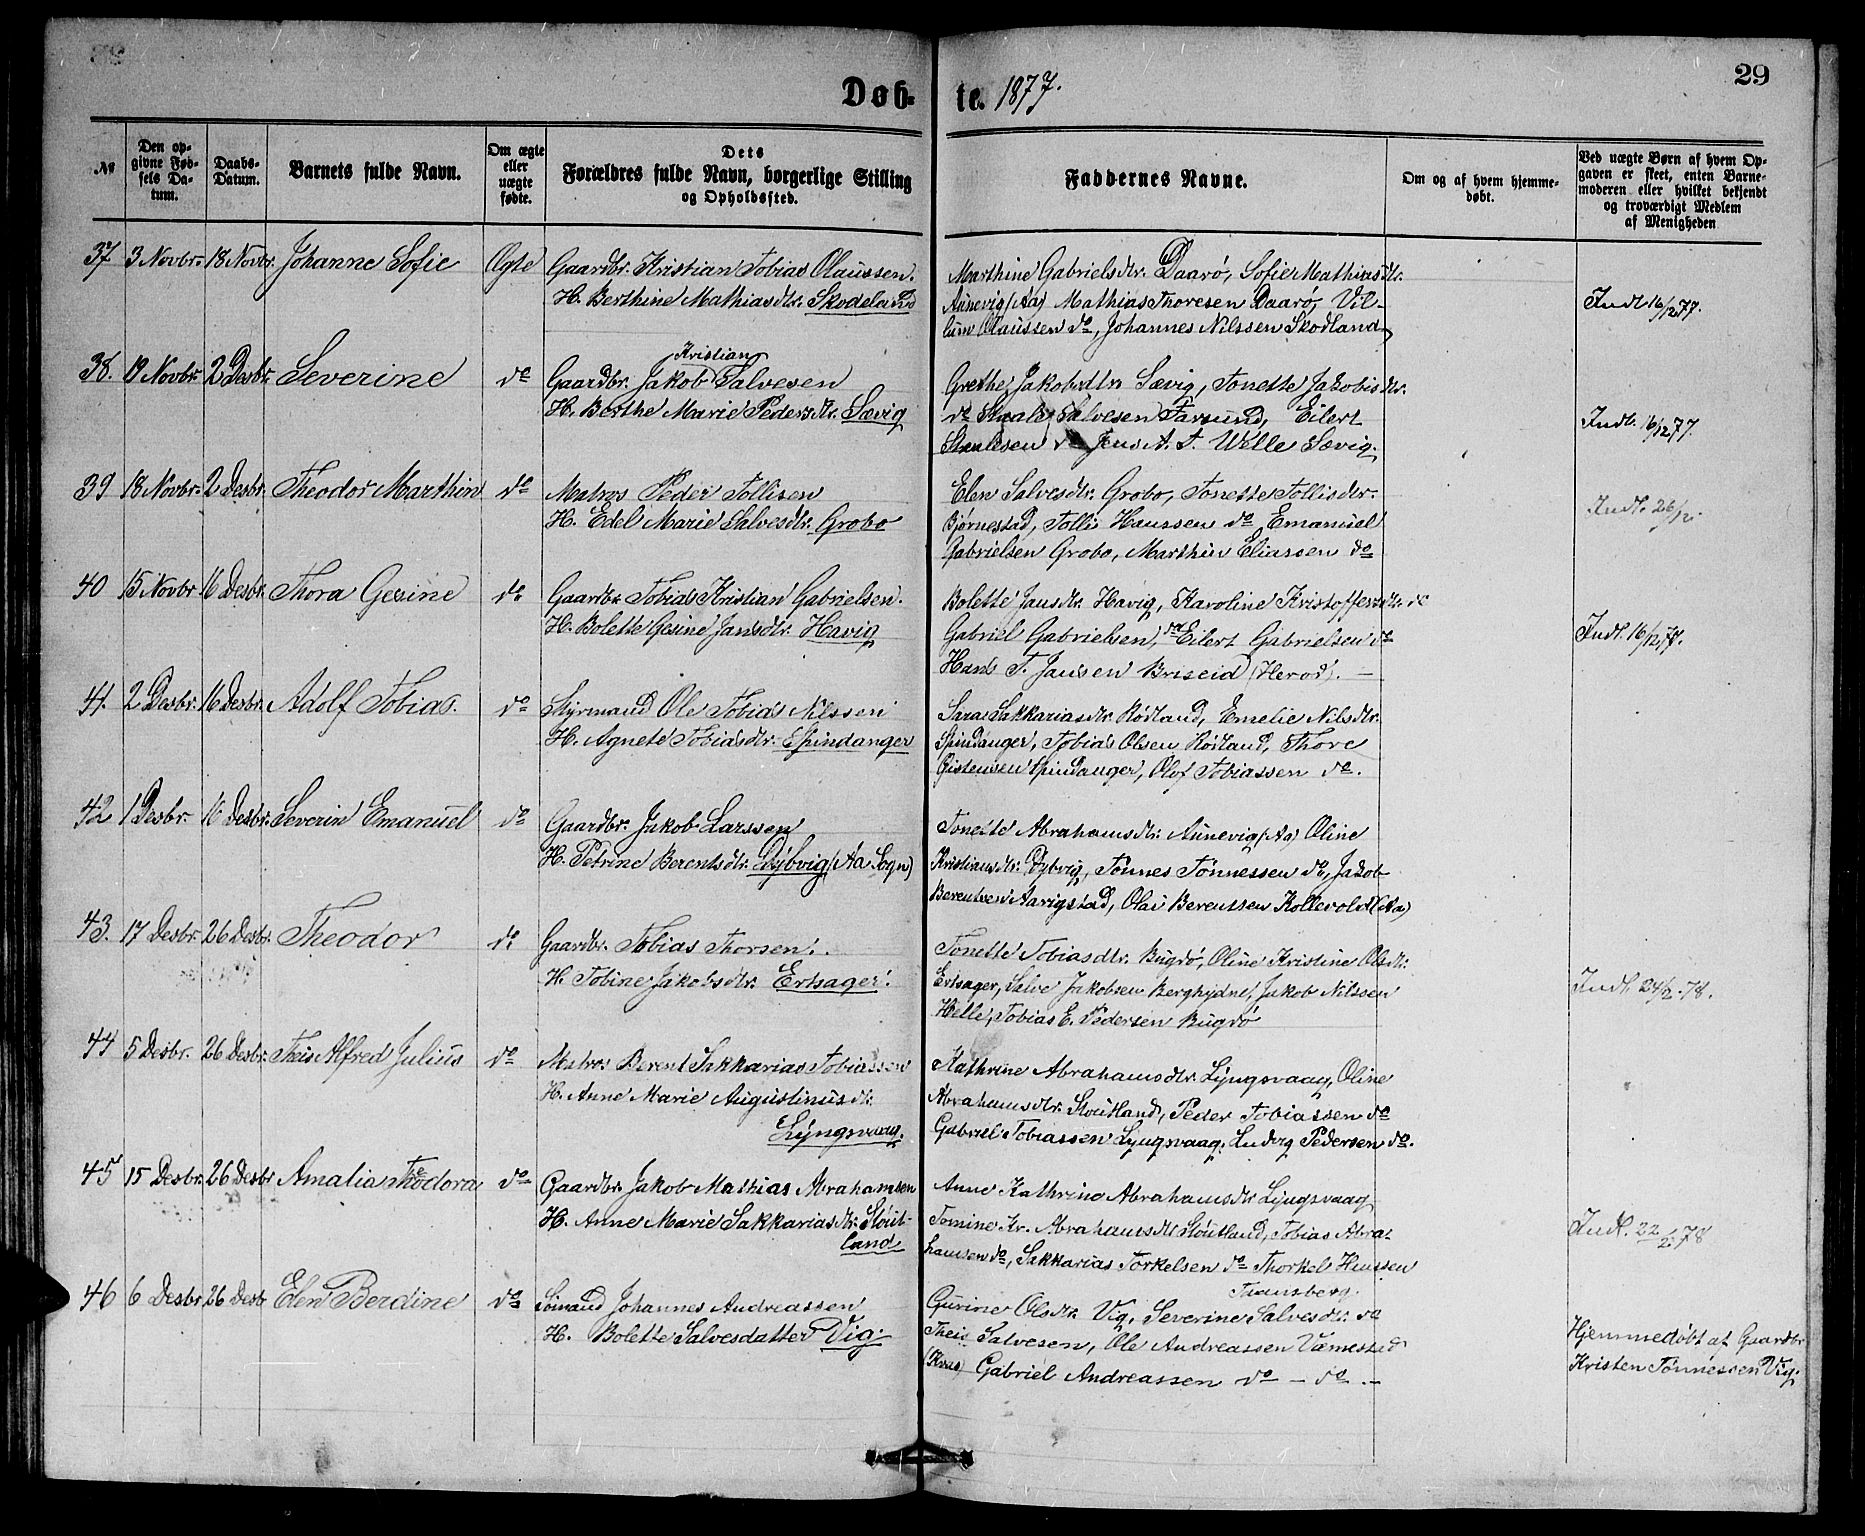 Døb-te. 1877.
29
№
Den opgivne Fødsels Datum.
Daabs-Datum.
Barnets fulde Navn.
Om ægte eller uægte fødte.
Dets Forældres fulde Navn, borgerlige Stilling og Opholdssted.
Faddernes Navne.
Om og af hvem hjemmedøbt.
Ved uægte Børn af hvem Opgaven er skeet, enten Barnemoderen eller hvilket bekjendt og troværdigt Medlem af Menigheden
37 3 Novbr. 18 Novbr. Johanne Sofie Ægte Gaardbr. Kristian Tobias Olaussen.
H. Berthine Mathiasdtr. Skodeland
Marthine Gabrielsdtr. Daarø, Sofie Mathiasdtr.
Aunevig (Aa) Mathias Thoresen Daarø, Vil-
lum Olaussen do, Johannes Nilssen Skodland
Indl. 16/12 77.
38. 19 Novbr. 2 Desbr. Severine do Gaardbr. Jakob Kristian Salvesen
H. Berthe Marie Pedersdtr. Sævig
Grethe Jakobsdtr Sævig, Tonette Jakobsdtr.
do Staale Salvesen Farsund, Eilert
Staalesen do Jens A. T. Wille Sævig.
Indl. 16/12 77.
39 18 Novbr. 2 Desbr. Theodor Marthin do Matros Peder Tollisen
H. Edel Marie Salvesdtr. Grobo
Elen Salvesdtr. Grobo, Tonette Tollisdtr.
Bjørnestad, Tolli Hanssen do Emanuel
Gabrielsen Grobo, Marthin Eliassen do
Indl. 26/12.
40 15 Novbr 16 Desbr. Thora Gesine do Gaardbr. Tobias Kristian Gabrielsen.
H. Bolette Gesine Jansdtr. Havig
Bolette Jansdtr. Havig, Karoline Kristoffersdtr. do
Gabriel Gabrielsen, do Eilert Gabrielsen do
Hans T. Jansen Briseid (Herod). —
Indl. 16/12 78.
41. 2 Desbr. 16 Desbr. Adolf Tobias. do Styrmand Ole Tobias Nilssen
H. Agnete Tobiasdtr. Spindanger
Sara Sakkariasdtr. Rødland, Emelie Nilsdtr.
Spindanger, Tobias Olsen Rødland, Thore
Spindanger, Olof Tobiassen do.
42 1 Desbr. 16 Desbr. Severin Emanuel do Gaardbr. Jakob Larssen
H. Petrine Berentsdtr. Dybvig (Aa Sogn)
Tonette Abrahamsdtr. Aunevig (Aa) Oline
Kristiansdtr. Dybvig, Tønnes Tønnessen do, Jakob
Berentsen Aarigstad, Olai Berentsen Kollevold (Aa)
43. 17 Desbr. 26 Desbr. Theodor do Gaardbr. Tobias Thorsen.
H. Tobine Jakobsdtr. Ertsager.
Tonette Tobiasdtr. Bugdø, Oline Kristine Olsdtr.
Ertsager, Salve Jakobsen Berghydne, Jakob Nilssen
Helle, Tobias E. Pedersen Bugdø
Indl. 24/2 78.
44 5 Desbr. 26 Desbr. Theis Alfred Julius do Matros Berent Sakkarias Tobiassen
H. Anne Marie Augustinusdtr.
Lyngsvaag.
Kathrine Abrahamsdtr. Lyngsvaag, Oline
Abrahamsdtr. Stoutland, Peder Tobiassen do
Gabriel Tobiassen Lyngsvaag, Ludvig Pedersen do.
45 15 Desbr. 26 Desbr Amalia Theodora do Gaardbr. Jakob Mathias Abrahamsen
H. Anne Marie Sakkariasdtr. Stout-
land
Anne Kathrine Abrahamsdtr. Lyngsvaag
Tomine Kr. Abrahamsdtr. Stoutland, Tobias Abra-
hamsen do, Sakkarias Torkelsen do Thorkel Hanssen
Indl. 22/2 78
46 6 Desbr 26 Desbr Elen Berdine do Sømand Johannes Andreassen
H. Bolette Salvesdatter Vig.
Gurine Olsdtr. Vig, Severine Salvesdtr. do
Theis Salvesen, Ole Andreassen Vemestad
(Kvas) Gabriel Andreassen do — do. —
Hjemmedøbt af Gaardbr
Kristen Tønnessen Vig.